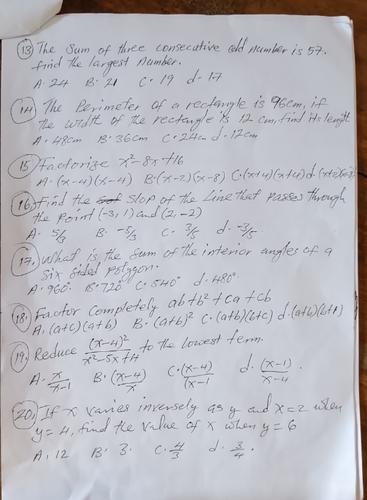 13 The Sum of three consecutive odd number is 57.
find the largest number.
A. 24 B. 21 C. 19 d. 17
14 The Perimeter of a rectangle is 96cm, if
the width of the rectangle is 12 cm, find its length
A. 48cm B. 36cm C. 24cm d. 12cm
15 Factorize x²-8x+16
A. (x-4)(x-4) B. (x-2)(x-8) C. (x+4)(x+4) d.
16 Find the Slop of the Line that Passes through
the Point (-3, 1) and (2, -2)
A. 5/3 B. -5/3 C. 3/5 d. -3/5
17. What is the Sum of the interior angles of a
Six Sided Polygon.
A. 960° B. 720° C. 540° d. 480°
18. Factor Completely ab+b²+ca+cb
A. (a+c)(a+b) B. (a+b)² C. (a+b)(b+c) d. (a+b)(b+1)
19. Reduce (x-4)²/x²-5x+4 to the lowest term.
A. x/x-1 B. (x-4)/x C. (x-4)/(x-1 d. (x-1)/x-4 .
20. If x varies inversely as y and x=2 when
y=4, find the value of x when y=6
A. 12 B. 3. C. 4/3 d. 3/4.